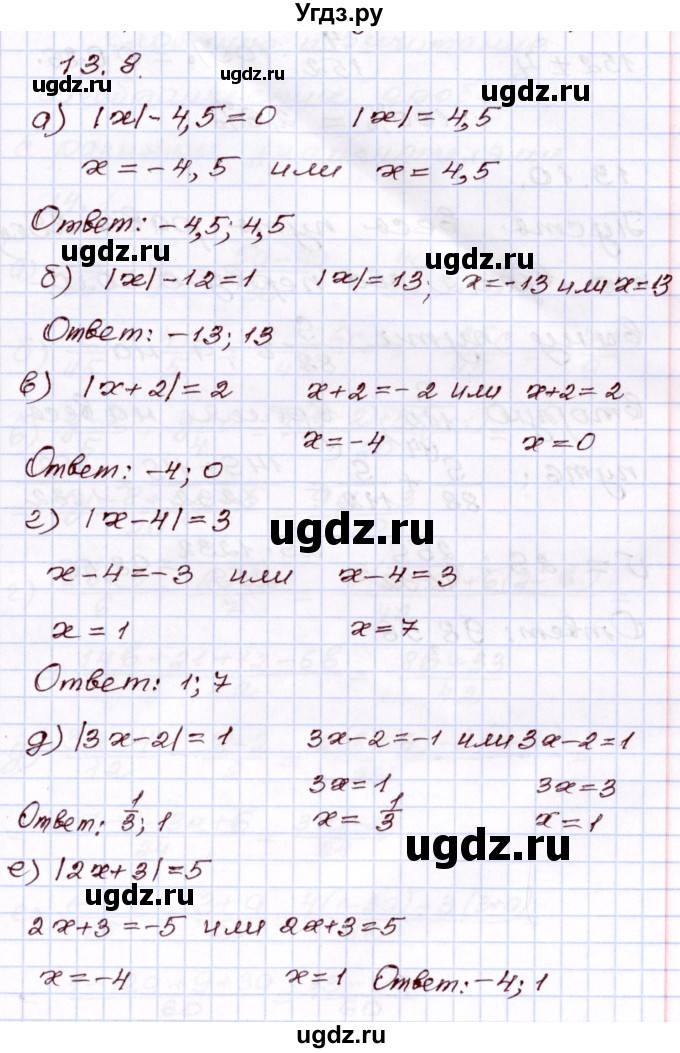 Угдз.ру
13.8.
ugdz.ru ugdz.ru ugdz.ru
а) |x| - 4,5 = 0 |x| = 4,5
x = -4,5 или x = 4,5
Ответ: -4,5; 4,5
ugdz.ru ugdz.ru
б) |x| - 12 = 1 |x| = 13; x = -13 или x = 13
Ответ: -13; 13
в) |x+2| = 2 x+2 = -2 или x+2 = 2
x = -4 x = 0
ugdz.ru
Ответ: -4; 0
г) |x-4| = 3
ugdz.ru
x-4 = -3 или x-4 = 3
x = 1 x = 7
Ответ: 1; 7
д) |3x-2| = 1 3x-2 = -1 или 3x-2 = 1
3x = 1 3x = 3
Ответ: 1/3; 1 x = 1/3 x = 1
ugdz.ru
е) |2x+3| = 5
2x+3 = -5 или 2x+3 = 5
x = -4 x = 1 Ответ: -4; 1
ugdz.ru